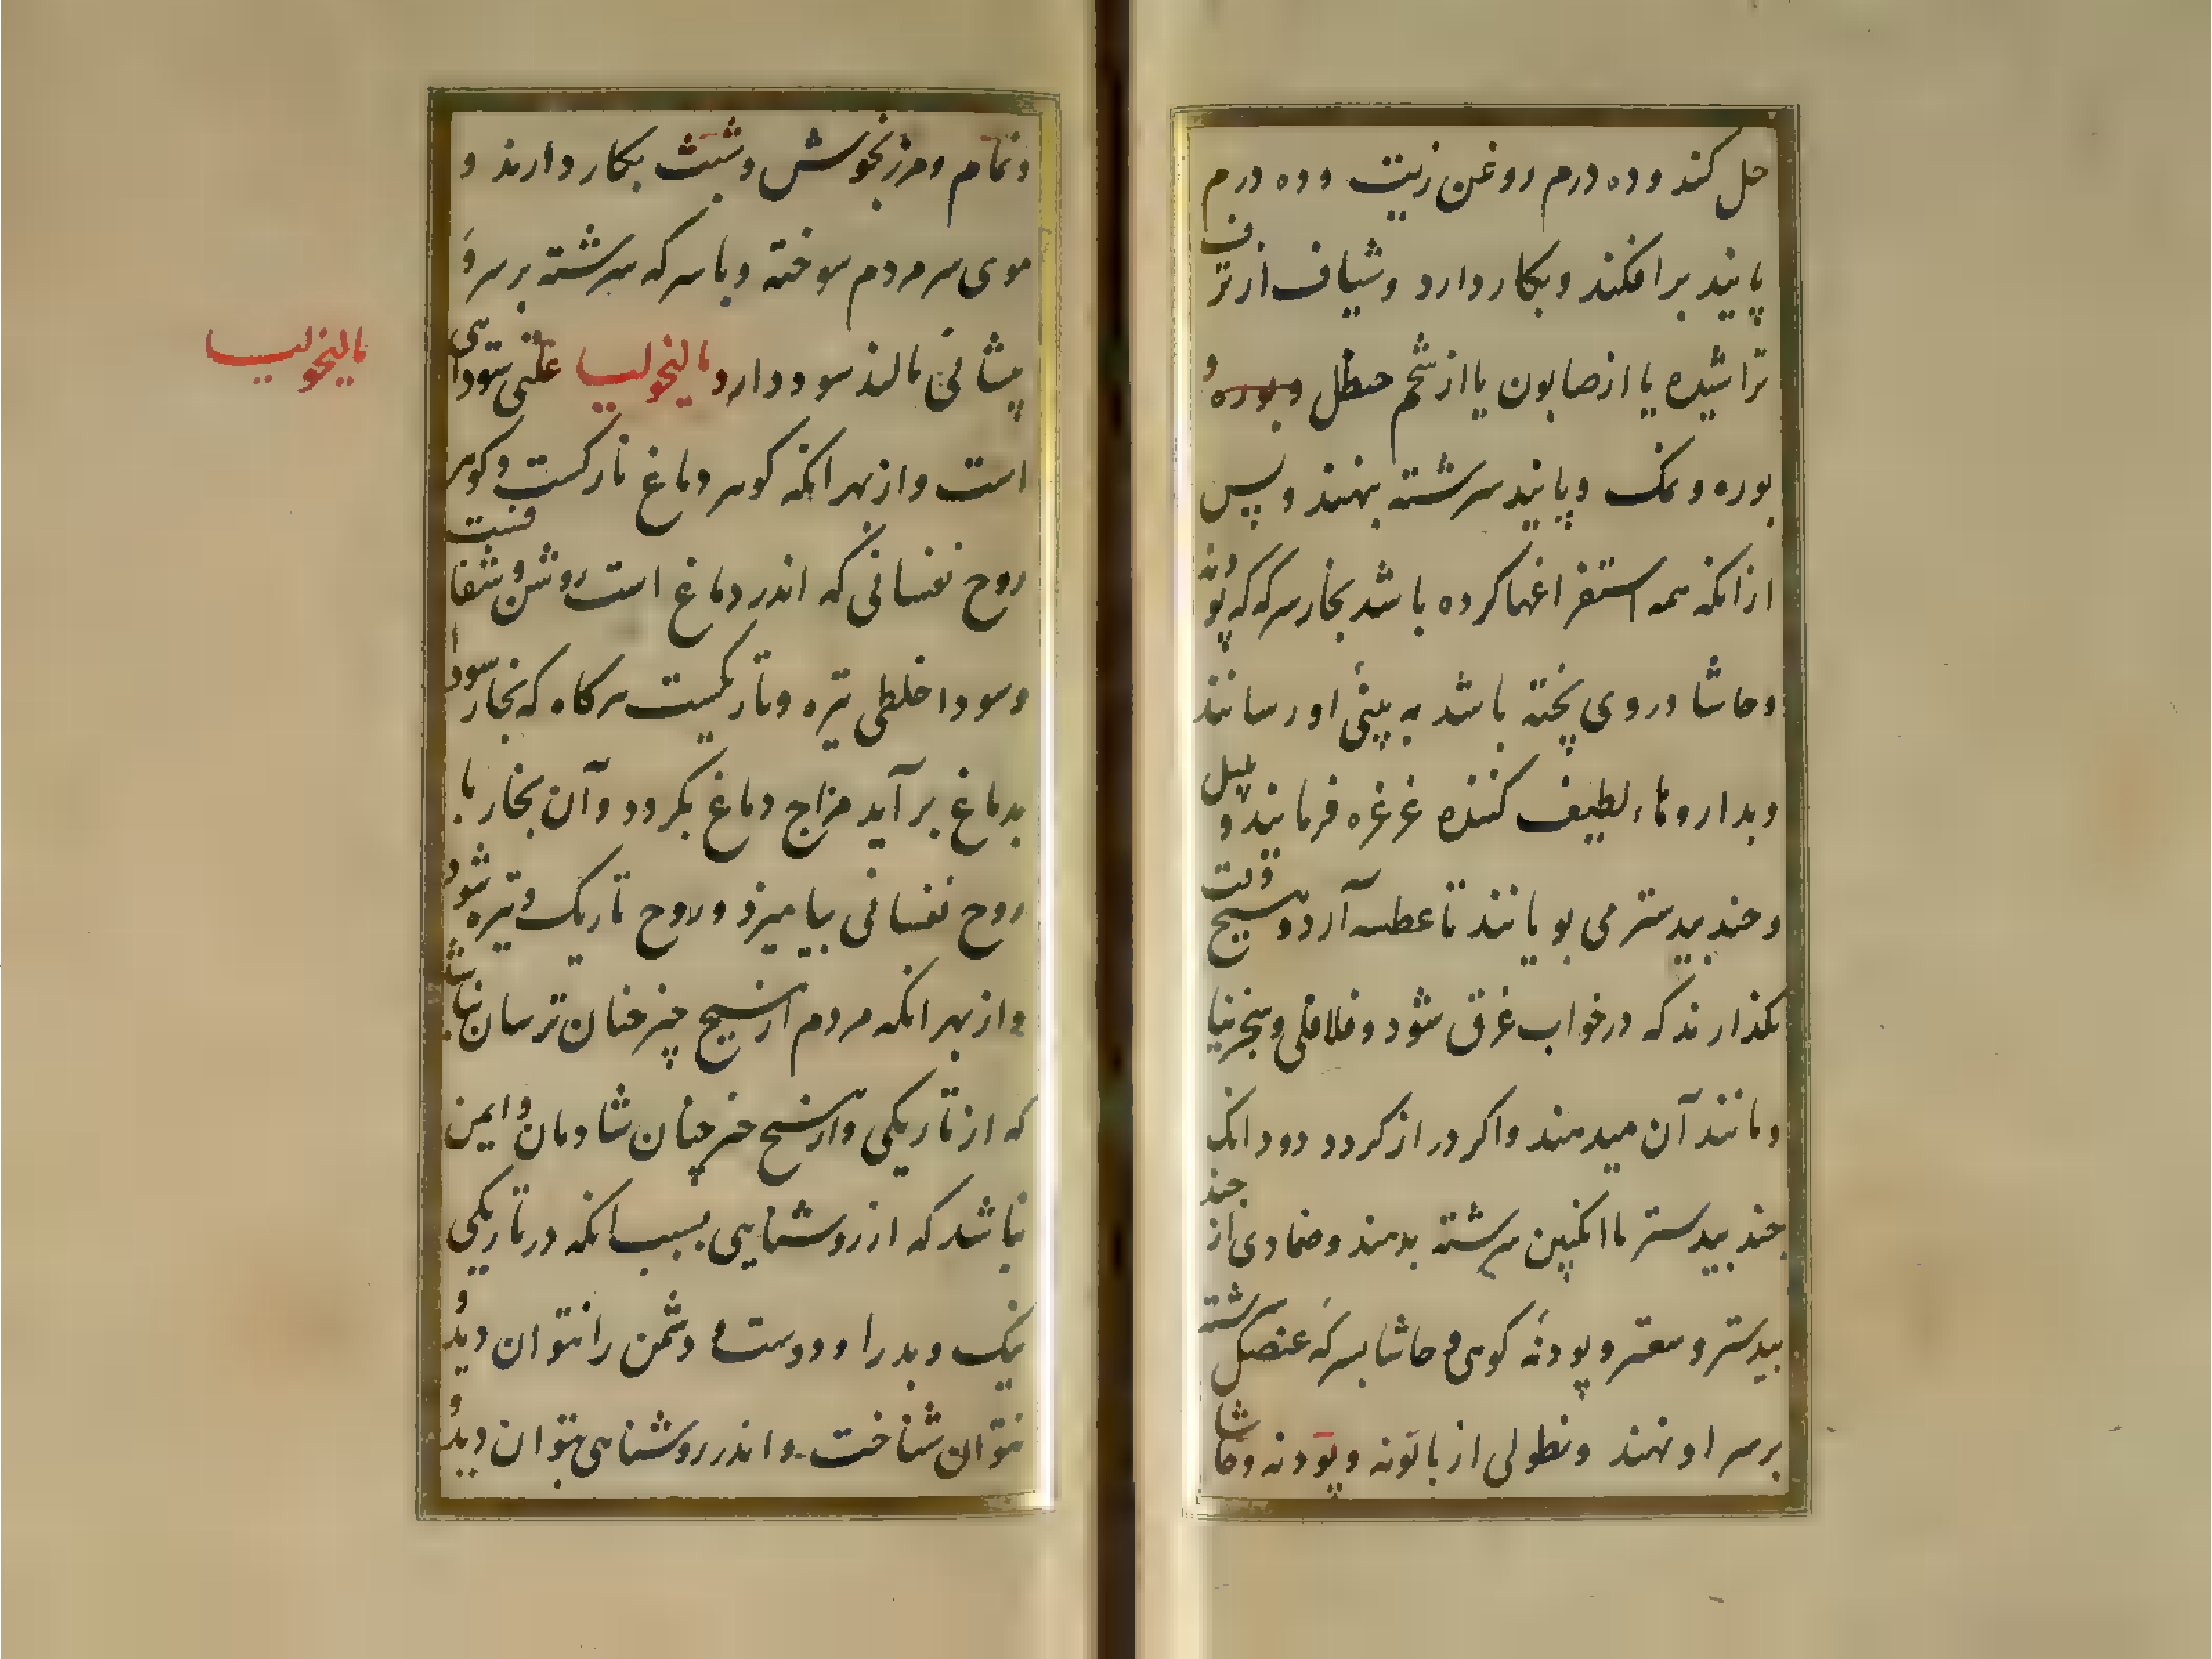 حل کند و ده درم روغن زیت و ده درم
پانید برافکند و بکار دارد و شیاف از ترف
تراشیده یا از صابون یا از شحم حنظل و بوره و
بوره و نمک و پانید سرشته بنهند و پس
از انکه همه استفراغها کرده باشد بخار سرکه که پودنه
و حاشا در وی پخته باشد به بینی او رسانند
و بداروهاء لطیف کننده غرغره فرمایند و پلپل
و جند بیدستر می بویانند تا عطسه آرد و هیچ وقت
نکذارند که در خواب غرق شود و فلافلی و سنجرنیا
و مانند آن میدهند و اکر دراز کردد دو دانک
جند بیدستر با انکبین سرشته بدهند و ضمادی از جند
بیدستر و سعتر و پودنه کوهی و حاشا بسرکه عنصل سرشته
بر سر او نهند و نطولی از بابونه و پودنه و حاشا
و نمام و مرزنجوش و شبث بکار دارند و
موی سر مردم سوخته و با سرکه سرشته بر سر و
پیشانی مالند سود دارد مالیخولیا علتی سودایی
مالیخولیا
است و از بهر انکه کوهر دماغ تارکست و کوهر
روح نفسانی که اندر دماغ است روشن و شفافست
و سودا خلطی تیره و تاریکست هرکاه که بخار سودا
بدماغ برآید مزاج دماغ بکردد و آن بخار با
روح نفسانی بیامیزد و روح تاریک و تیره شود
و از بهر انکه مردم از هیچ چیز چنان ترسان نباشد
که از تاریکی و از هیچ چیز چنان شادمان و ایمن
نباشد که از روشنایی بسبب انکه در تاریکی
نیک و بد را و دوست و دشمن را نتوان دید و
نتوان شناخت و اندر روشنایی بتوان دید و